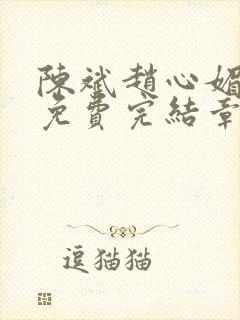 陳斌趙心媚
免費完結章
逗猫猫